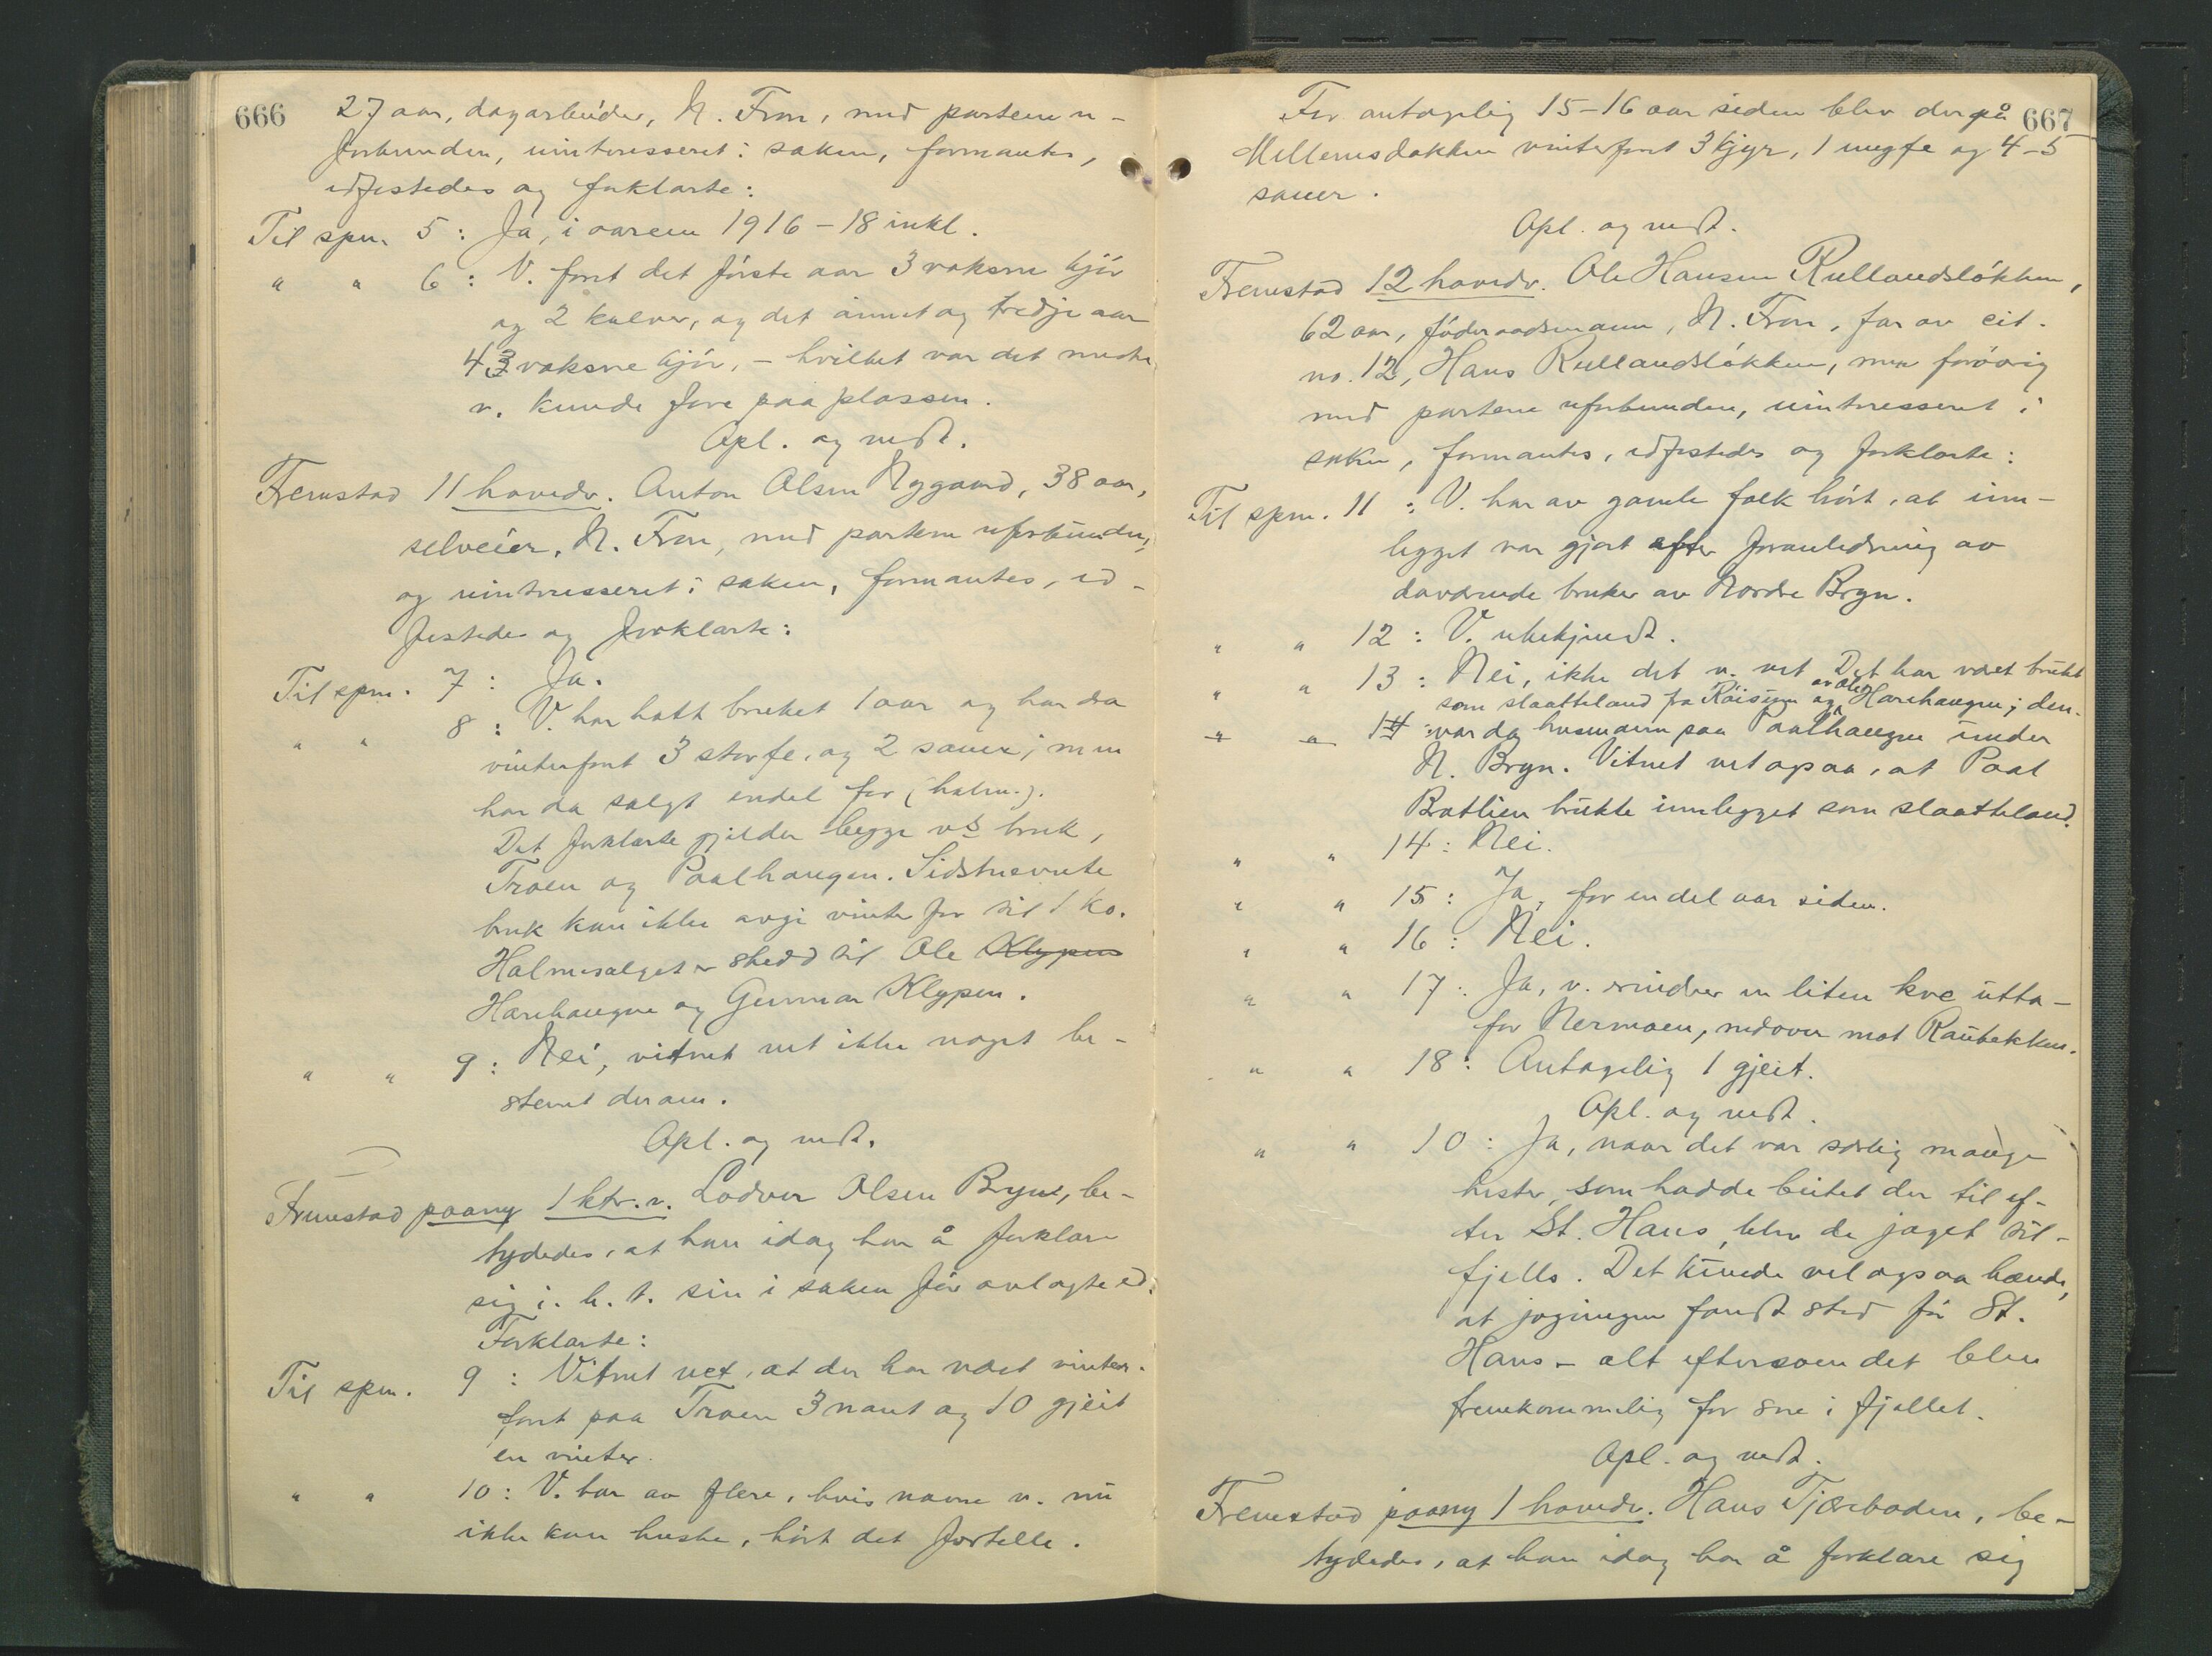 666
27 aar, dagarbeider, N. Fron, med partene u-
forbunden, uinteressert i saken, formantes,
edfestedes og forklarte:
Til spm. 5: Ja, i aarene 1916-18 inkl.
" " 6: V. foret det første aar 3 voksne kjør
og 2 kalver, og det annet og tredje aar
4 3 voksne kjør, - hvilket var det meste
v. kunde fore paa plassen.
Opl. og vedt.
Fremstod 11 hovedv. Anton Olsen Nygaard, 38 aar,
selveier, N. Fron, med partene uforbunden,
og uinteressert i saken, formantes, ed-
festedes og forklarte:
Til spm. 7: Ja.
" " 8: V. har hatt bruket 1 aar og har da
vinterforet 3 storfe, og 2 sauer; men
har da solgt endel for (halm.).
Det forklarte gjelder begge vs bruk,
Troen og Paalhaugen. Sidstnevnte
bruk kan ikke avgi vinterfor til 1 ko.
Halmsalget er skedd til Ole Klypen
Harehaugen og Gunnar Klypen.
" " 9: Nei, vitnet vet ikke noget be-
stemt derom.
Opl. og vedt.
Fremstod paany 1 ktr. v. Lodver Olsen Bryn, be-
tydedes, at han idag har å forklare
sig i. h. t. sin i saken før avlagte ed.
Forklarte:
Til spm. 9: Vitnet vet, at der har været vinter-
foret paa Troen 3 naut og 10 gjeit
en vinter.
" " 10: V. har av flere, hvis navne v. nu
ikke kan huske, hørt det fortelle.
667
For antagelig 15-16 aar siden blev der på
Mellemsdokken vinterforet 3 kjyr, 1 ungfe og 4-5
sauer.
Opl. og vedt.
Fremstod 12 hovedv. Ole Hansen Rullandsløkken,
62 aar, føderaadsmann, N. Fron, far av cit.
no. 12, Hans Rullandsløkken, men forøvrig
med partene uforbunden, uinteressert i
saken, formantes, edfestedes og forklarte:
Til spm. 11: V. har av gamle folk hørt, at inn-
legget var gjort efter foranledning av
daværende bruker av Nordre Bryn.
" " 12: V. ubekjendt.
" " 13: Nei, ikke det v. vet Det har været brukt
som slaatteland fra Røisem og av Ole Harehaugen; den-
" " 14: var da husmann paa Paalhaugen under
N. Bryn. Vitnet vet ogsaa, at Paal
Bratlien brukte innlegget som slaatteland.
" " 14: Nei.
" " 15: Ja, for en del aar siden.
" " 16: Nei.
" " 17: Ja, v. erindrer en liten kve utta-
for Nermoen, nedover mot Raubekken.
" " 18: Antagelig 1 gjeit.
Opl. og vedt.
" " 10: Ja, naar det var særlig mange
hester, som hadde beitet der til ef-
ter St. Hans, blev de jaget til-
fjells. Det kunde vel ogsaa hænde,
at jagningen fandt sted før St.
Hans - alt eftersom det blev
fremkommelig for sne i fjellet.
Opl. og vedt.
Fremstod paany 1 hovedv. Hans Tjæreboden, be-
tydedes, at han idag har å forklare sig